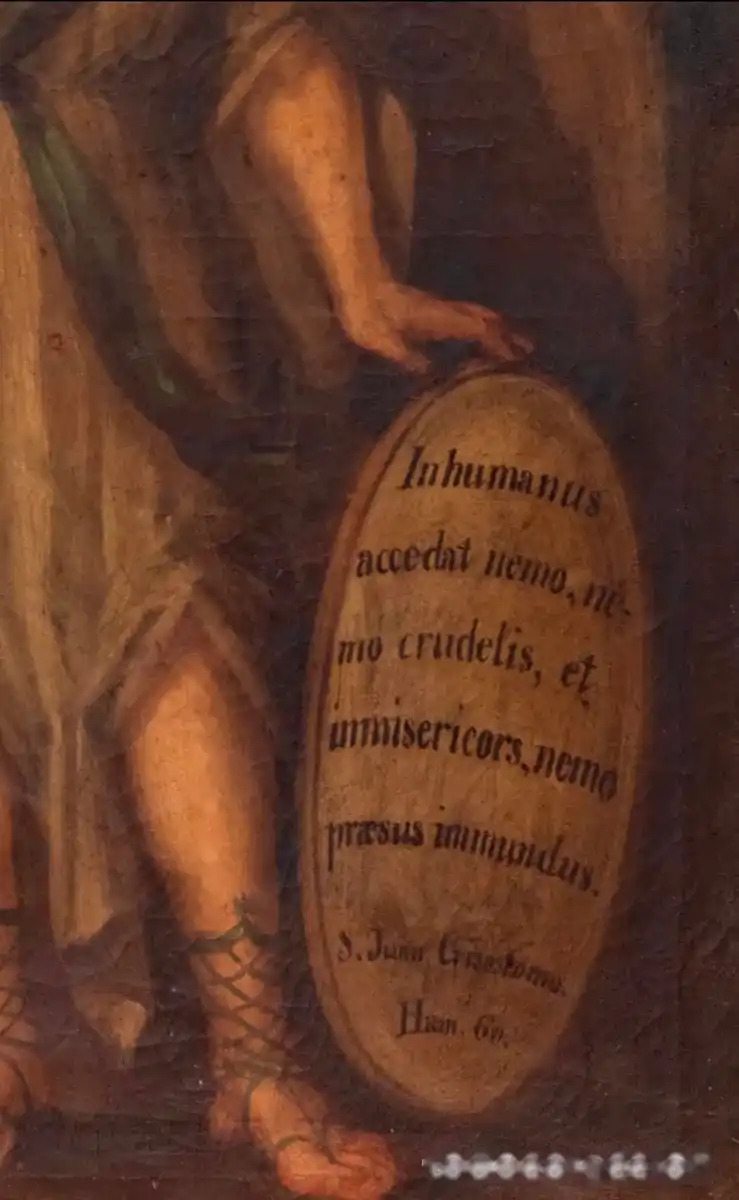 Inhumanus
accedat nemo, ne-
mo crudelis, et
inmisericors, nemo
præsus inmundus.
S. Juan Crisostomo.
Hom. 60.